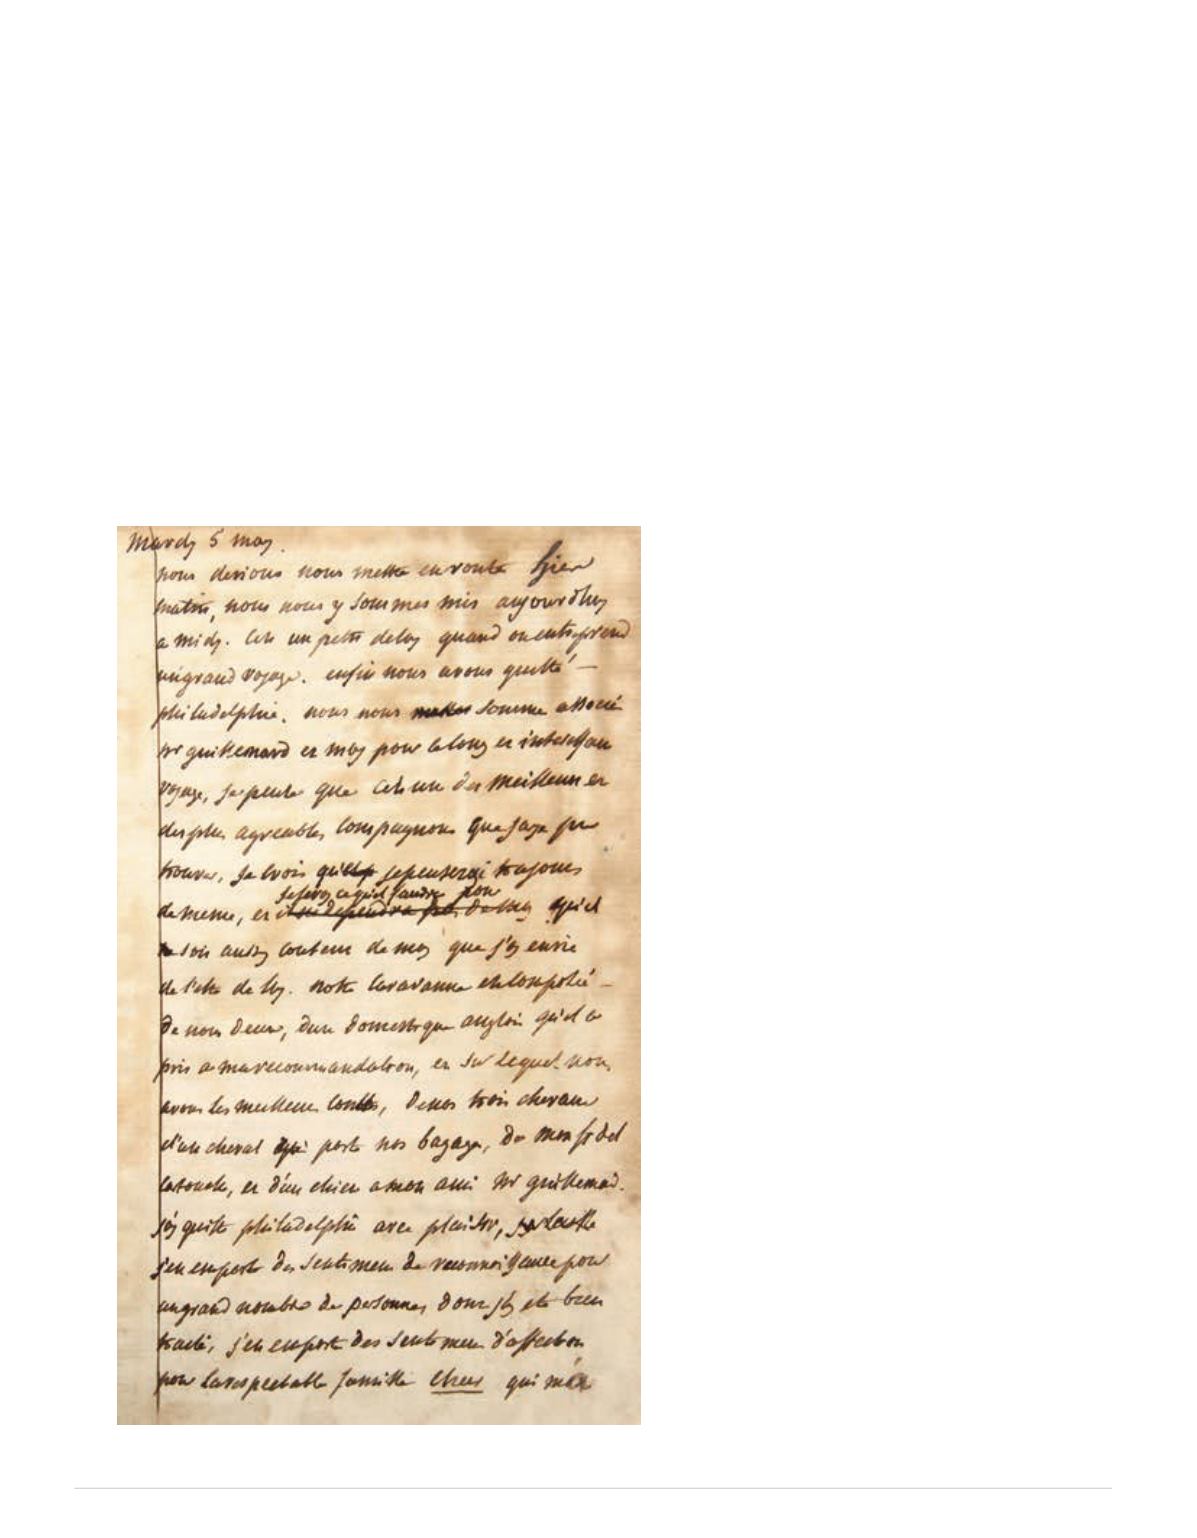 Mardy 5 may.
nous devions nous mettre en route hier
matin, nous nous y sommes mis aujourdhuy
a midy. Cest un petit delay quand on entreprend
un grand voyage. enfin nous avons quitté —
philadelphie. nous nous sommes associé
Mr guillemard et moy pour ce long et interessant
voyage, je pense que cest un des meilleurs et
des plus agreables compagnons que jaye pu
trouver, je crois que je penserai toujours
je feray ce quil faudra pour
de meme, et quil
soit aussy content de moy que j'ay envie
de l'etre de luy. notre caravanne est composée —
de nous deux, dun domestique anglois quil a
pris a ma recommandation, et sur lequel nous
avons les meilleurs contes, de nos trois chevaux
d'un cheval qui porte nos bagages, de mon fidel
cartouche, et d'un chien a mon ami Mr guillemard.
j'ay quitté philadelphie avec plaisir,
j'en emporte des sentimens de reconnoissance pour
un grand nombre de personnes dont j'ay eté bien
traité, j'en emporte des sentimens d'affection
pour la respectable famille Chew qui m'a